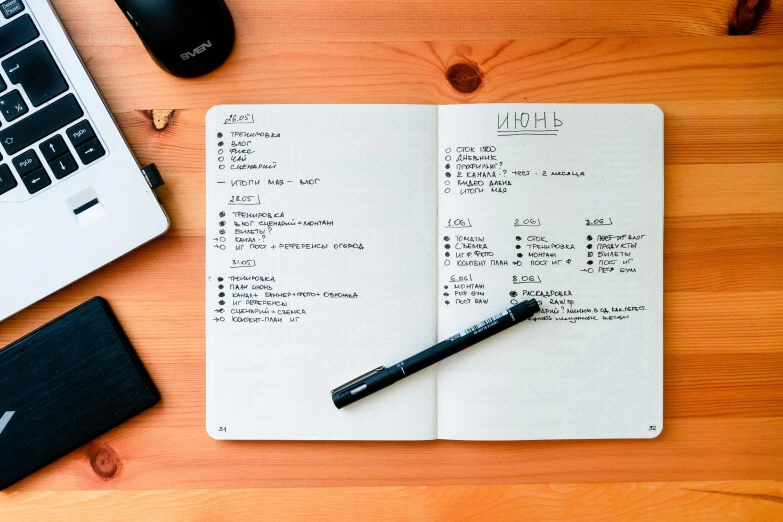 SVEN
Delete
PgUp
PgDn
26.05
ТРЕНИРОВКА
ВЛОГ
ФИКС
ЧАЙ
СЦЕНАРИЙ
— ИТОГИ МАЯ — ВЛОГ
28.05
ТРЕНИРОВКА
ВЛОГ СЦЕНАРИЙ + МОНТАЖ
БИЛЕТЫ?
КАНАЛ-?
ИГ ПОСТ + РЕФЕРЕНСЫ ОГОРОД
31.05
ТРЕНИРОВКА
ПЛАН ИЮНЬ
КАНАЛ + БАННЕР + ФОТО + ОБЛОЖКА
ИГ РЕФЕРЕНСЫ
СЦЕНАРИЙ + СЪЕМКА
КОНТЕНТ-ПЛАН ИГ
31
ИЮНЬ
СТОК
ДНЕВНИК
ПРОФИЛИНГ?
2 КАНАЛА-? ТЕСТ - 2 МЕСЯЦА
ВИДЕО
ИТОГИ МАЯ
1.06 2.06 3.06
ТОМАТЫ СТОК ПОСТ ИГ ВЛОГ
СЪЕМКА ТРЕНИРОВКА ПРОДУКТЫ
ИГ ФОТО МОНТАЖ БИЛЕТЫ
КОНТЕНТ ПЛАН ПОСТ ИГ ПОСТ ИГ
РЕФ БУМ
6.06 8.06
МОНТАЖ РАСКАДРОВКА
РЕФ БУМ RAW
ПОСТ RAW
32